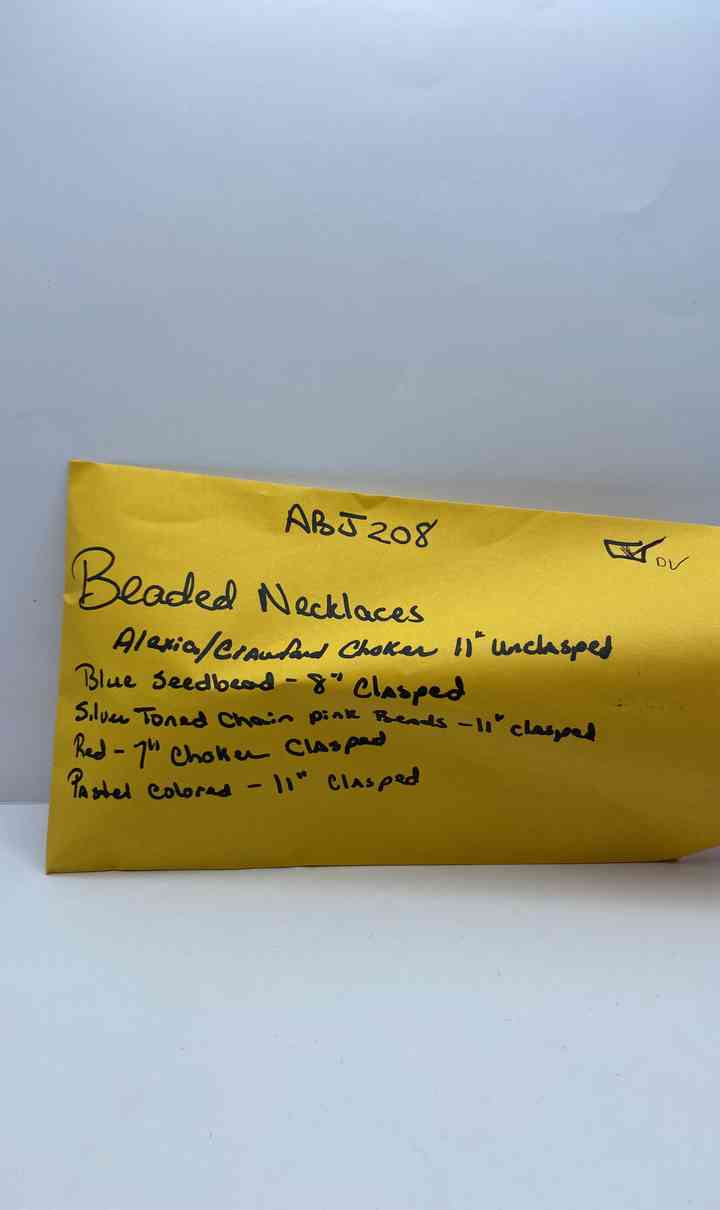 ABJ208
DV
Beaded Necklaces
Alexia/Crawford Choker 11" unclasped
Blue Seedbead - 8" Clasped
Silver Toned Chain pink Beads - 11" clasped
Red - 7" Choker Clasped
Pastel colored - 11" Clasped